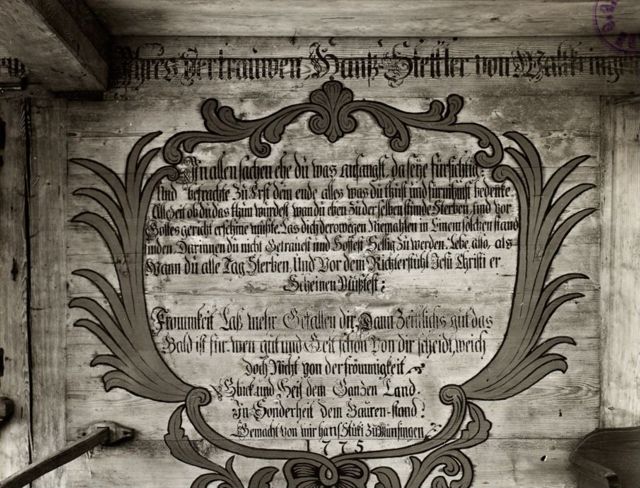 Ihres Vertrauwen Hanß Stettler von Walkringen
In allen sachen ehe du was anfangst, da seÿe fürsichtig,
Und betrachte Zu Erst dem ende, alles was du thust und fürnimst bedencke
Alle Zeit ob du das thun wurdest, wan du eben Zu der selben stunde Sterben, und vor
Gottes gericht erschine müßte. Las dich derowegen Niemahlen in Einem solchen stand
finden, Darinnen du nicht Getrauest und hoffest Sellig Zu werden. Lebe also, als
Wann du alle Tag Sterben, Und Vor dem Richterstuhl Jesu Christi er
Scheinen Müßtest.
Frommkeit Laß mehr Gefallen dir, Dann Zeitlichs gut das
Bald ist für wen gut und Gelt schon von dir scheidt, weich
doch Nicht von der frömmigkeit
Glück und Heil dem Ganzen Land,
in Sonderheit dem Bauren-stand.
Gemacht von mir hans Stucki Zu Münsingen
775